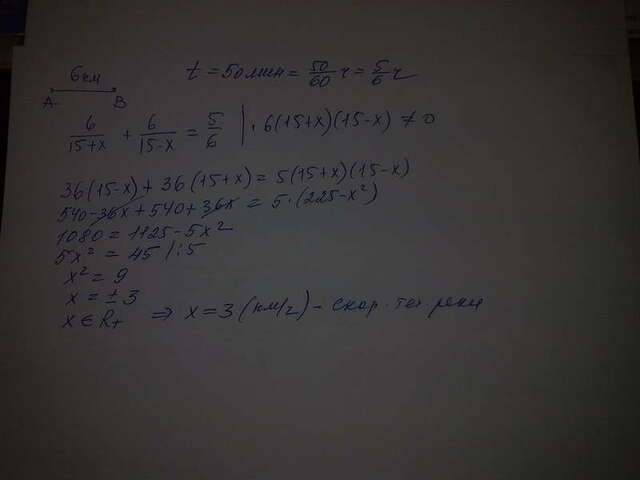 6 км t = 50 мин = 50/60 ч = 5/6 ч
А В
6/(15+x) + 6/(15-x) = 5/6 | · 6(15+x)(15-x) ≠ 0
36(15-x) + 36(15+x) = 5(15+x)(15-x)
540 - 36x + 540 + 36x = 5·(225-x²)
1080 = 1125 - 5x²
5x² = 45 |:5
x² = 9
x = ±3
x ∈ R₊ ⇒ x = 3 (км/ч) - скор. теч. реки